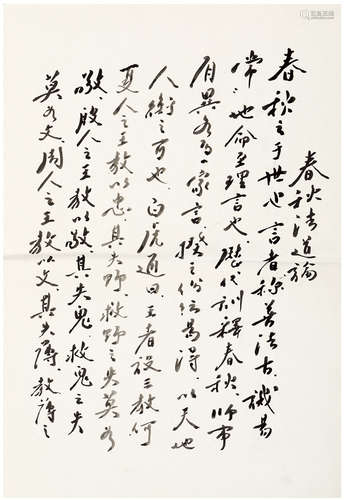 春秋法道論
春秋之于世也言者称善法古譏易
常也命至理言也歷代訓釋春秋師
自異各為一家言揆之為得以天地
人衡之可也白虎通曰王者設三教何
夏人之王教以忠其失野救野之失莫如
敬殷人之王教以敬其失鬼救鬼之失
莫如文周人之王教以文其失薄救薄之